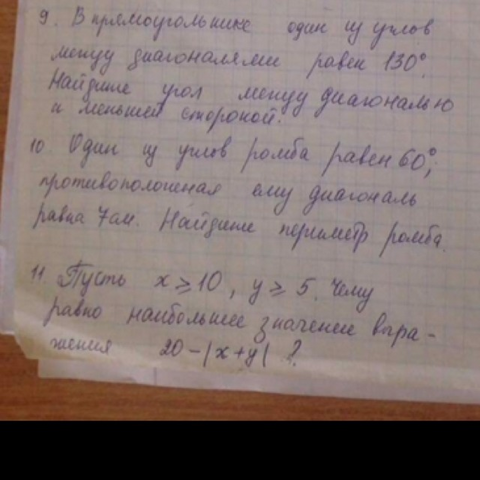 9. В прямоугольнике один из углов
между диагоналями равен 130°.
Найдите угол между диагональю
и меньшей стороной.
10 Один из углов ромба равен 60°,
противоположная ему диагональ
равна 7см. Найдите периметр ромба.
11. Пусть x ⩾ 10, y ⩾ 5. Чему
равно наибольшее значение выра-
жения 20-|x+y| ?